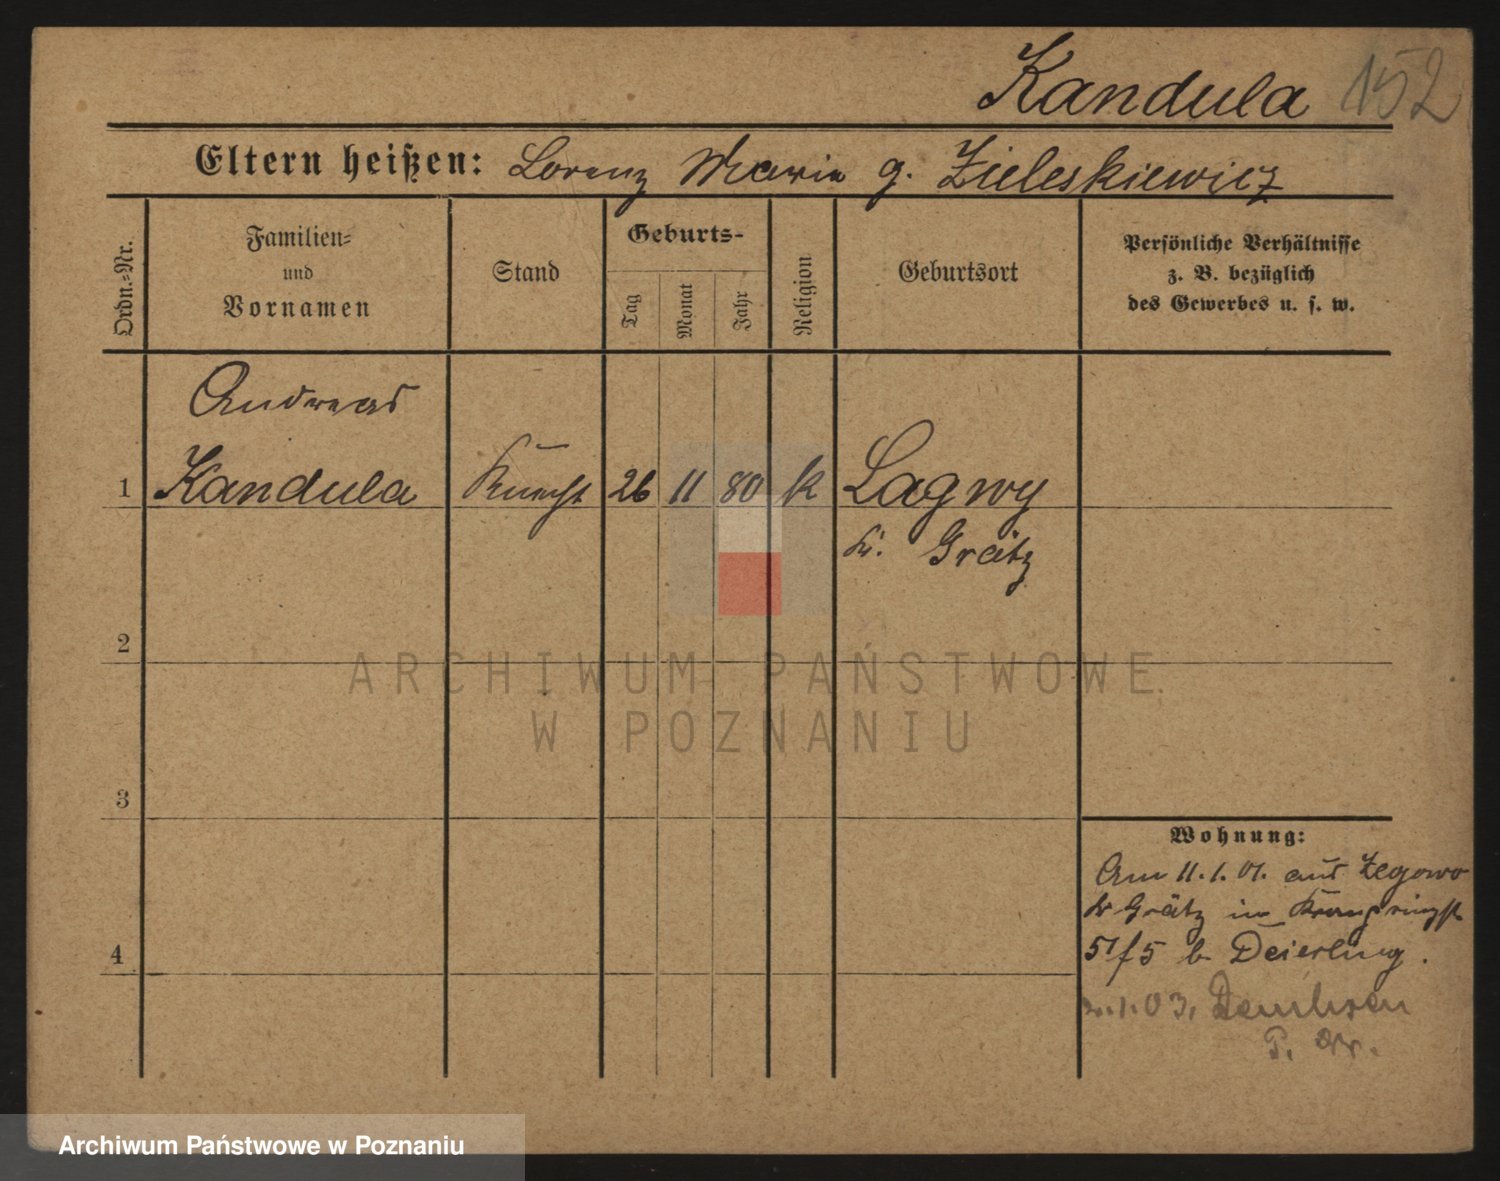 Kandula 152
Eltern heißen: Lorenz Marie g. Zieleskiewicz
Ordn.-Nr.
Familien-
und
Vornamen
Stand
Geburts-
Tag
Monat
Jahr
Religion
Geburtsort
Persönliche Verhältnisse
z. B. bezüglich
des Gewerbes u. s. w.
Andreas
1 Kandula Knecht 26 11 80 k Lagwy
Kr. Grätz
2
3
4
Wohnung:
Am 11.1.01. aus Zegowo
Kr Grätz in
51/5 b Deierling.
1.03.
P. Ow.
ARCHIWUM PAŃSTWOWE
W POZNANIU
Archiwum Państwowe w Poznaniu